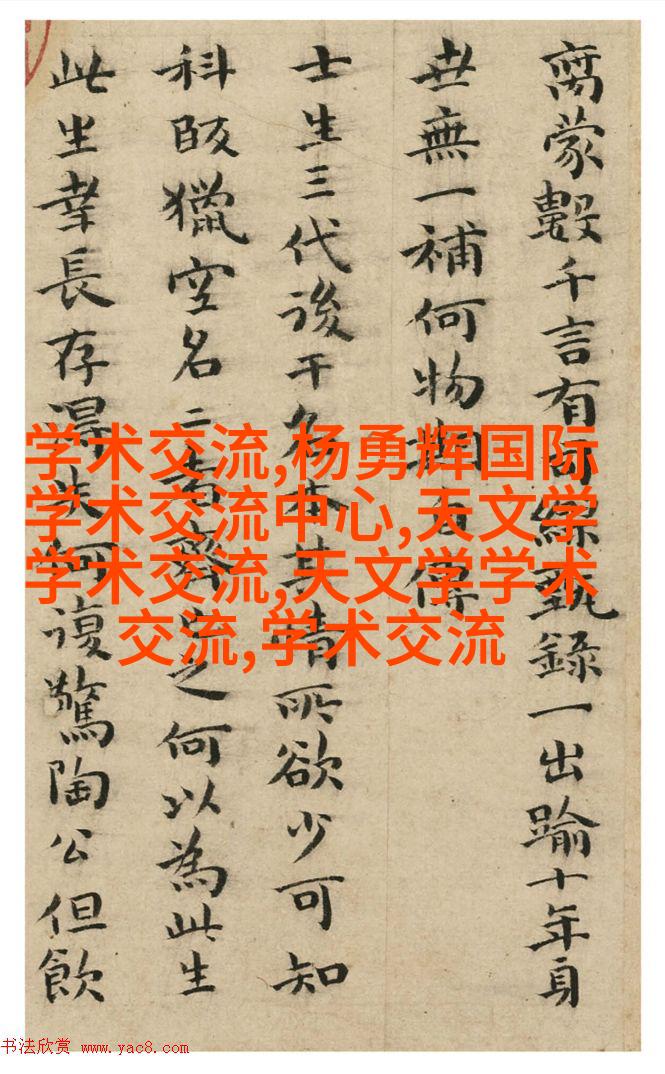 离蒙數千言有何
錄一出踰十年身
世無一補何物
士生三代後干名本其情所欲少可知
科段獵空名二者齊
之何以為此生
此生幸長存得失何復驚陶公但飲
学术交流,杨勇辉国际
学术交流中心,天文学
学术交流,天文学学术
交流,学术交流
书法欣赏 www.yac8.com